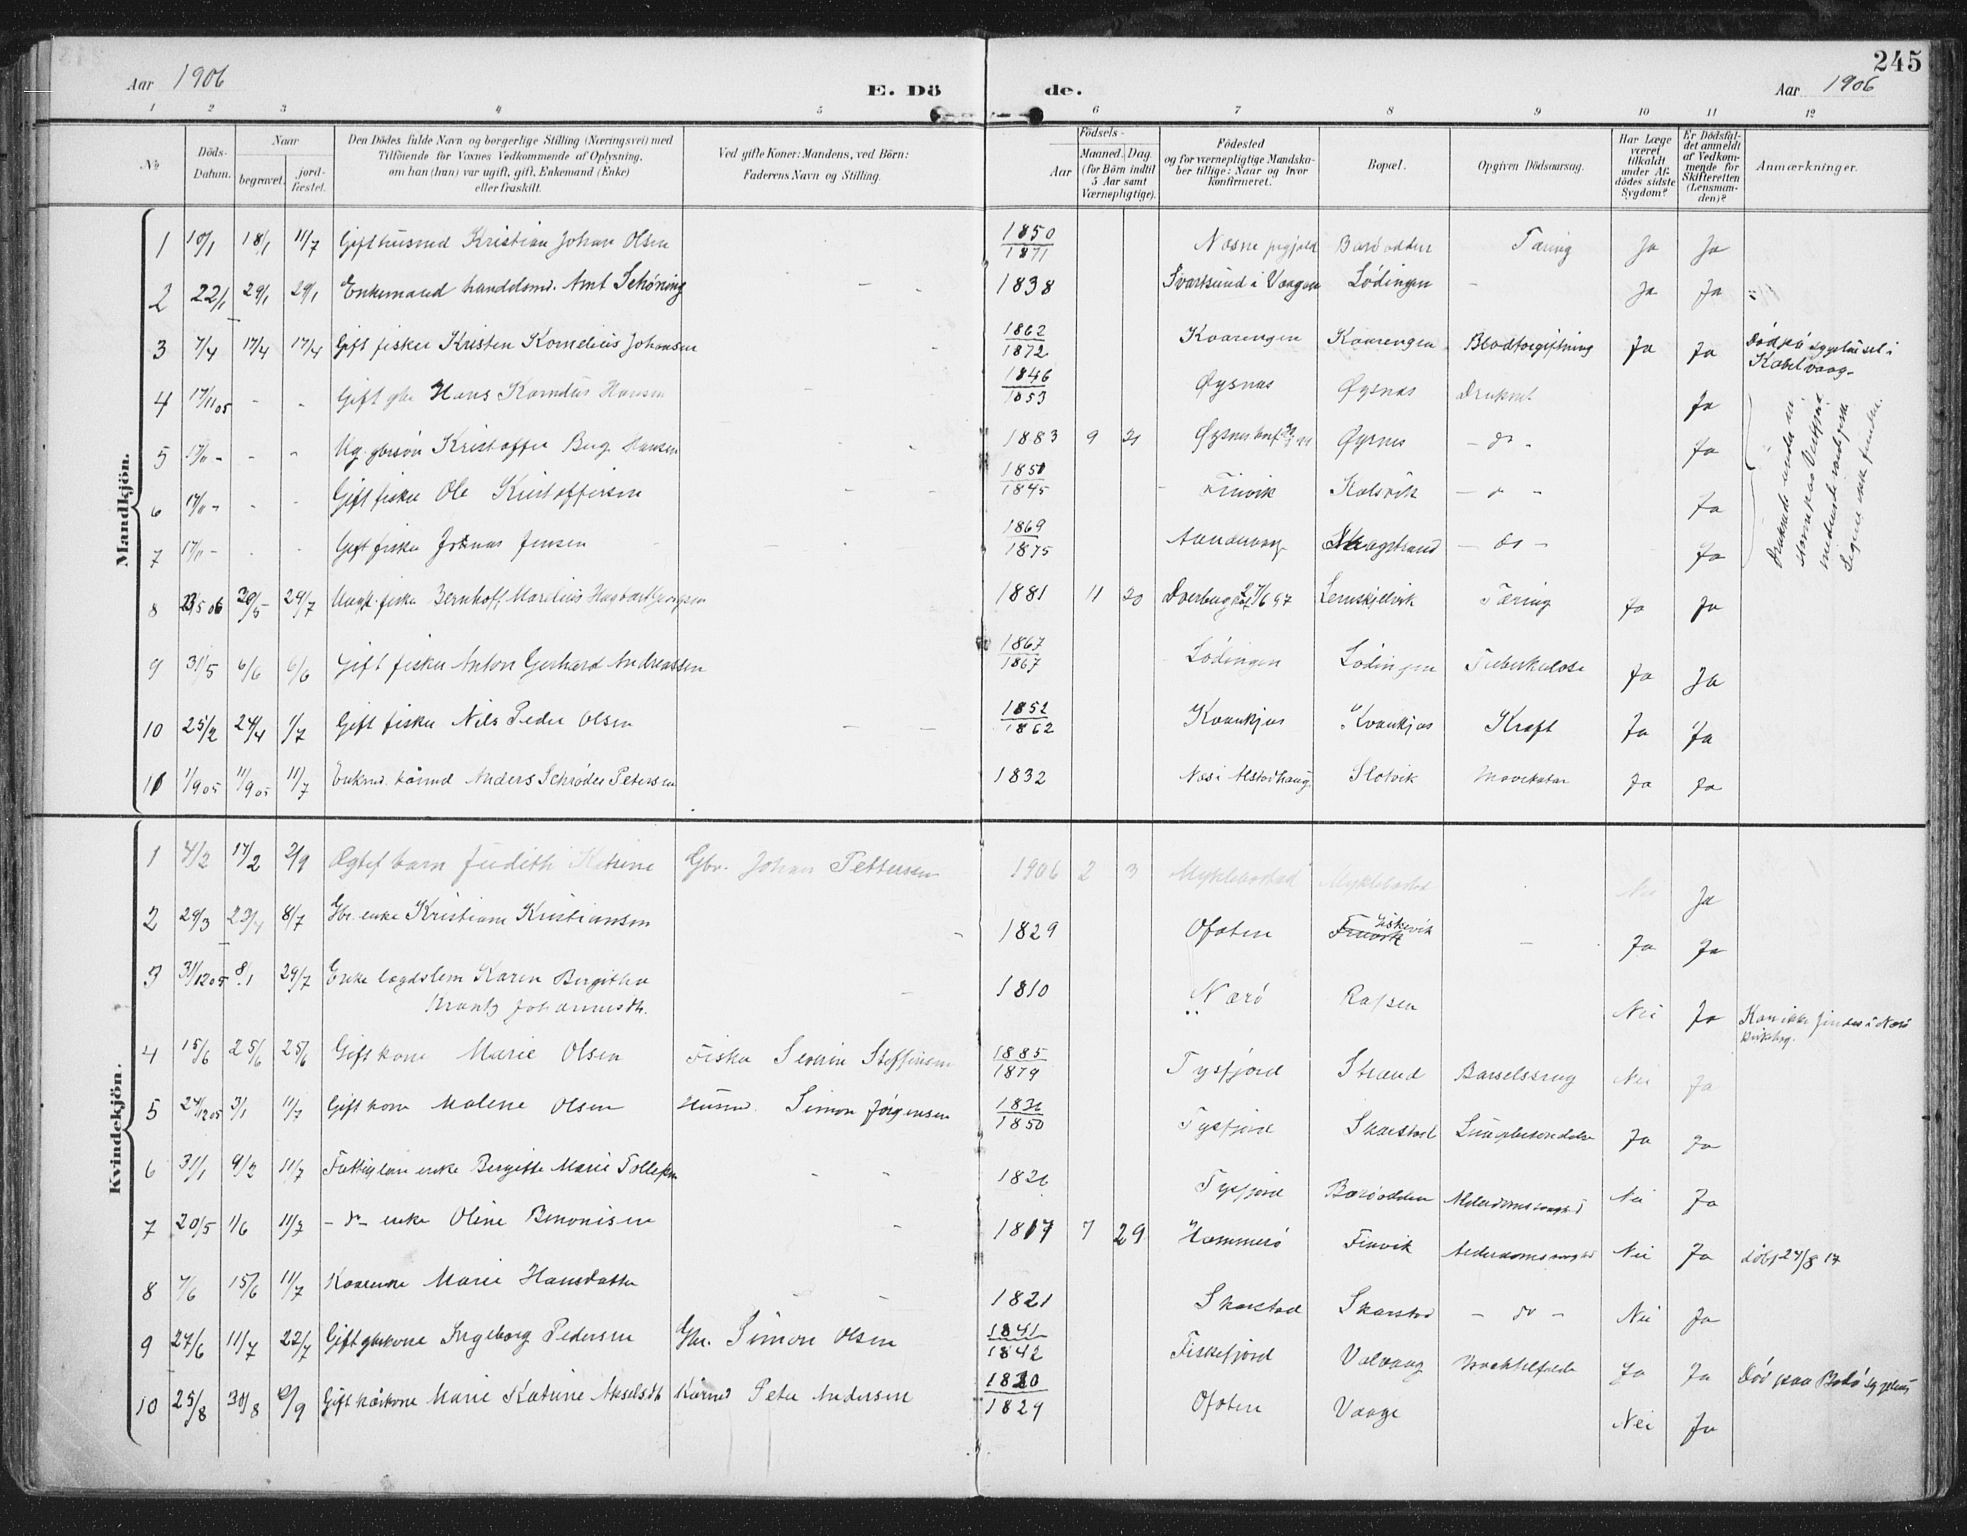 245
Aar 1906
E. Dö
de.
Aar 1906
1 2 3 4 5 6 7 8 9 10 11 12
No
Döds-Datum.
Naar
begravet.
jord-fæstet.
Den Dödes fulde Navn og borgerlige Stilling (Næringsvei) med
Tilföiende for Voxnes Vedkommende af Oplysning,
om han (hun) var ugift, gift, Enkemand (Enke)
eller fraskilt.
Ved gifte Koner: Mandens, ved Börn:
Faderens Navn og Stilling.
Födsels-
Aar
Maaned. Dag.
(for Börn indtil
5 Aar samt
Værnepligtige).
Födested
og for værnepligtige Mandska-
ber tillige: Naar og hvor
konfirmeret.
Bopæl.
Opgiven Dödsaarsag.
Har Læge
været
tilkaldt
under Af-
dödes sidste
Sygdom?
Er Dödsfal-
det anmeldt
af Vedkom-
mende for
Skifteretten
(Lensman-
den)?
Anmærkninger.
Mandkjön.
1 10/1 18/1 11/7 Gift husmd Kristian Johan Olsen 1850 1871 Næsne prgjeld Barøodden Tæring Ja Ja
2 22/1 29/1 29/1 Enkemand handelsmd. Arnt Schøning - - 1838 Svartsund i Vaagan Lødingen - Ja Ja
3 7/4 17/4 17/4 Gift fisker Kristen Kornelius Johansen 1862 1872 Kvaringen Kvaringen Blodforgiftning Ja Ja Død på sygehuset i
Kabelvaag
4 17/11 05 - - Gift gbr Hans Hansen 1846 1853 Øysnæs Øysnæs Druknet Ja
5 17/11 - - - Ug. gbrsøn Kristoffer Berg Hansen 1883 9 21 Øysnes Øysnes - do - Ja
6 17/11 - - - Gift fisker Ole Kristoffersen - - 1851 1845 Finvik Kalsvik - do - Ja
7 17/11 - - - Gift fisker Johnas Jensen - - 1869 1875 - do - Ja
8 23/5 06 30/5 29/7 Ungk. fisker Bernhoff Marelius 1881 11 20 Tæring Ja Ja
9 31/5 6/6 6/6 Gift fisker Anton Gerhard Andreassen 1867 1867 Lødingen Lødingen Tuberkulose Ja Ja
10 25/2 24/4 1/7 Gift fisker Nils Peder Olsen - - 1852 1862 Kvankjos Kvankjos Kræft Ja Ja
11 1/9 05 11/9 05 11/7 Enkmd. kårmd Anders Schrøder Petersen 1832 Næs i Alstadhaug Slotvik Mavekatar Ja Ja
Kvindekjön.
1 4/2 17/2 2/9 Ægtef barn Judith Katrine Gbr. Johan Pettersen 1906 2 3 Myklebostad Myklebostad Nei Ja
2 29/3 23/4 8/7 Gbr. enke Kristiane Kristiansen - 1829 Ofoten Finvik Fiskevik - Ja Ja
3 31/12 05 8/1 29/7 Enke lægdslem Karen Birgitha
Krantz Johannesdt. - 1810 Nærø Rafsen Nei Ja Kan ikke findes i Nærø
kirkebog.
4 15/6 25/6 25/6 Gift kone Marie Olsen Fisker Severin Steffensen 1885 1879 Tysfjord Strand Barselsseng Nei Ja
5 27/12 05 3/1 11/7 Gift kone Malene Olsen Husmd. Simon Jørgensen 1836 1850 Tysfjord Skarstad Ja Ja
6 31/1 9/2 11/7 Fattiglem enke Bergitte Marie Tollefsen - - 1826 Tysfjord Barøodden Alderdomssvaghed Nei Ja
7 20/5 1/6 11/7 - do - enke Oline Benonisen - 1817 7 29 Hammerø Finvik Alderdomssvaghed Nei Ja døbt 24/8 17
8 7/6 15/6 11/7 Kaarenke Marie Hansdatter - - 1821 Skarstad Skarstad - do - Nei Ja
9 27/6 11/7 22/7 Gift gbrkone Ingeborg Pedersen Gbr. Simon Olsen 1841 1842 Fiskefjord Valvaag Ja Ja Død paa Bodø sygehus
10 25/8 30/8 2/9 Gift kårkone Marie Katrine Akselsdt Kårmd Peter Andersen 1820 1829 Ofoten Vaage Nei Ja